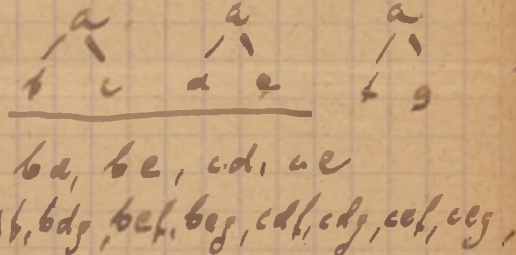 a a a
b c d e f g
bd, be, cd, ce
bdg, bef, beg, cdf, cdg, cef, ceg,